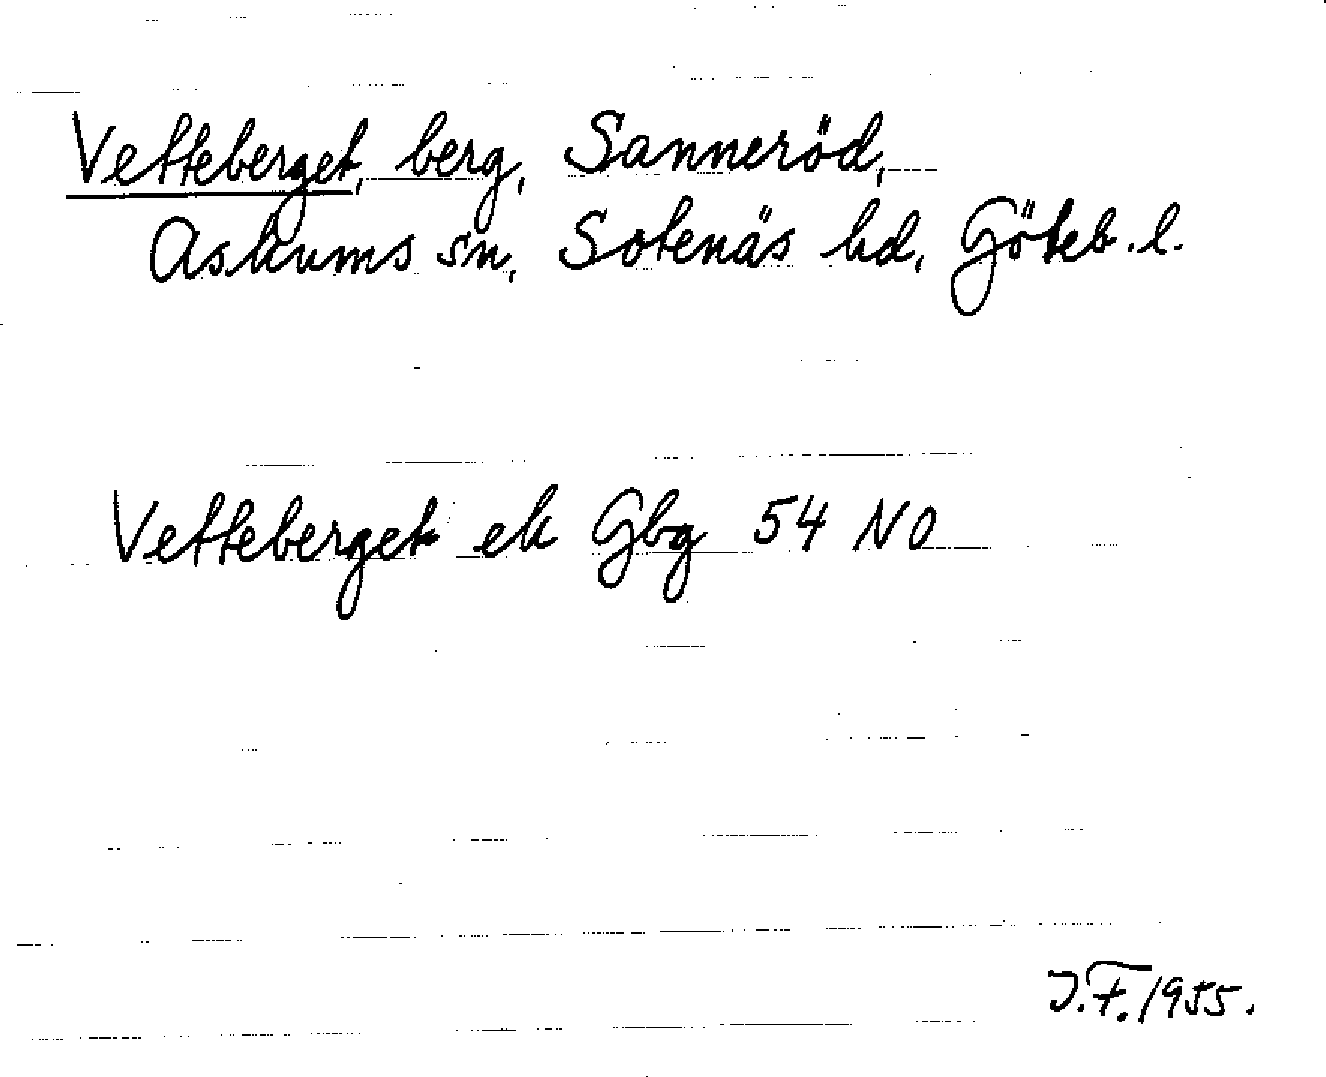 Vetteberget, berg, Sanneröd,
Askums sn, Sotenäs hd, Göteb. l.
Vetteberget ek Gbg 54 NO
J.F. 1955.